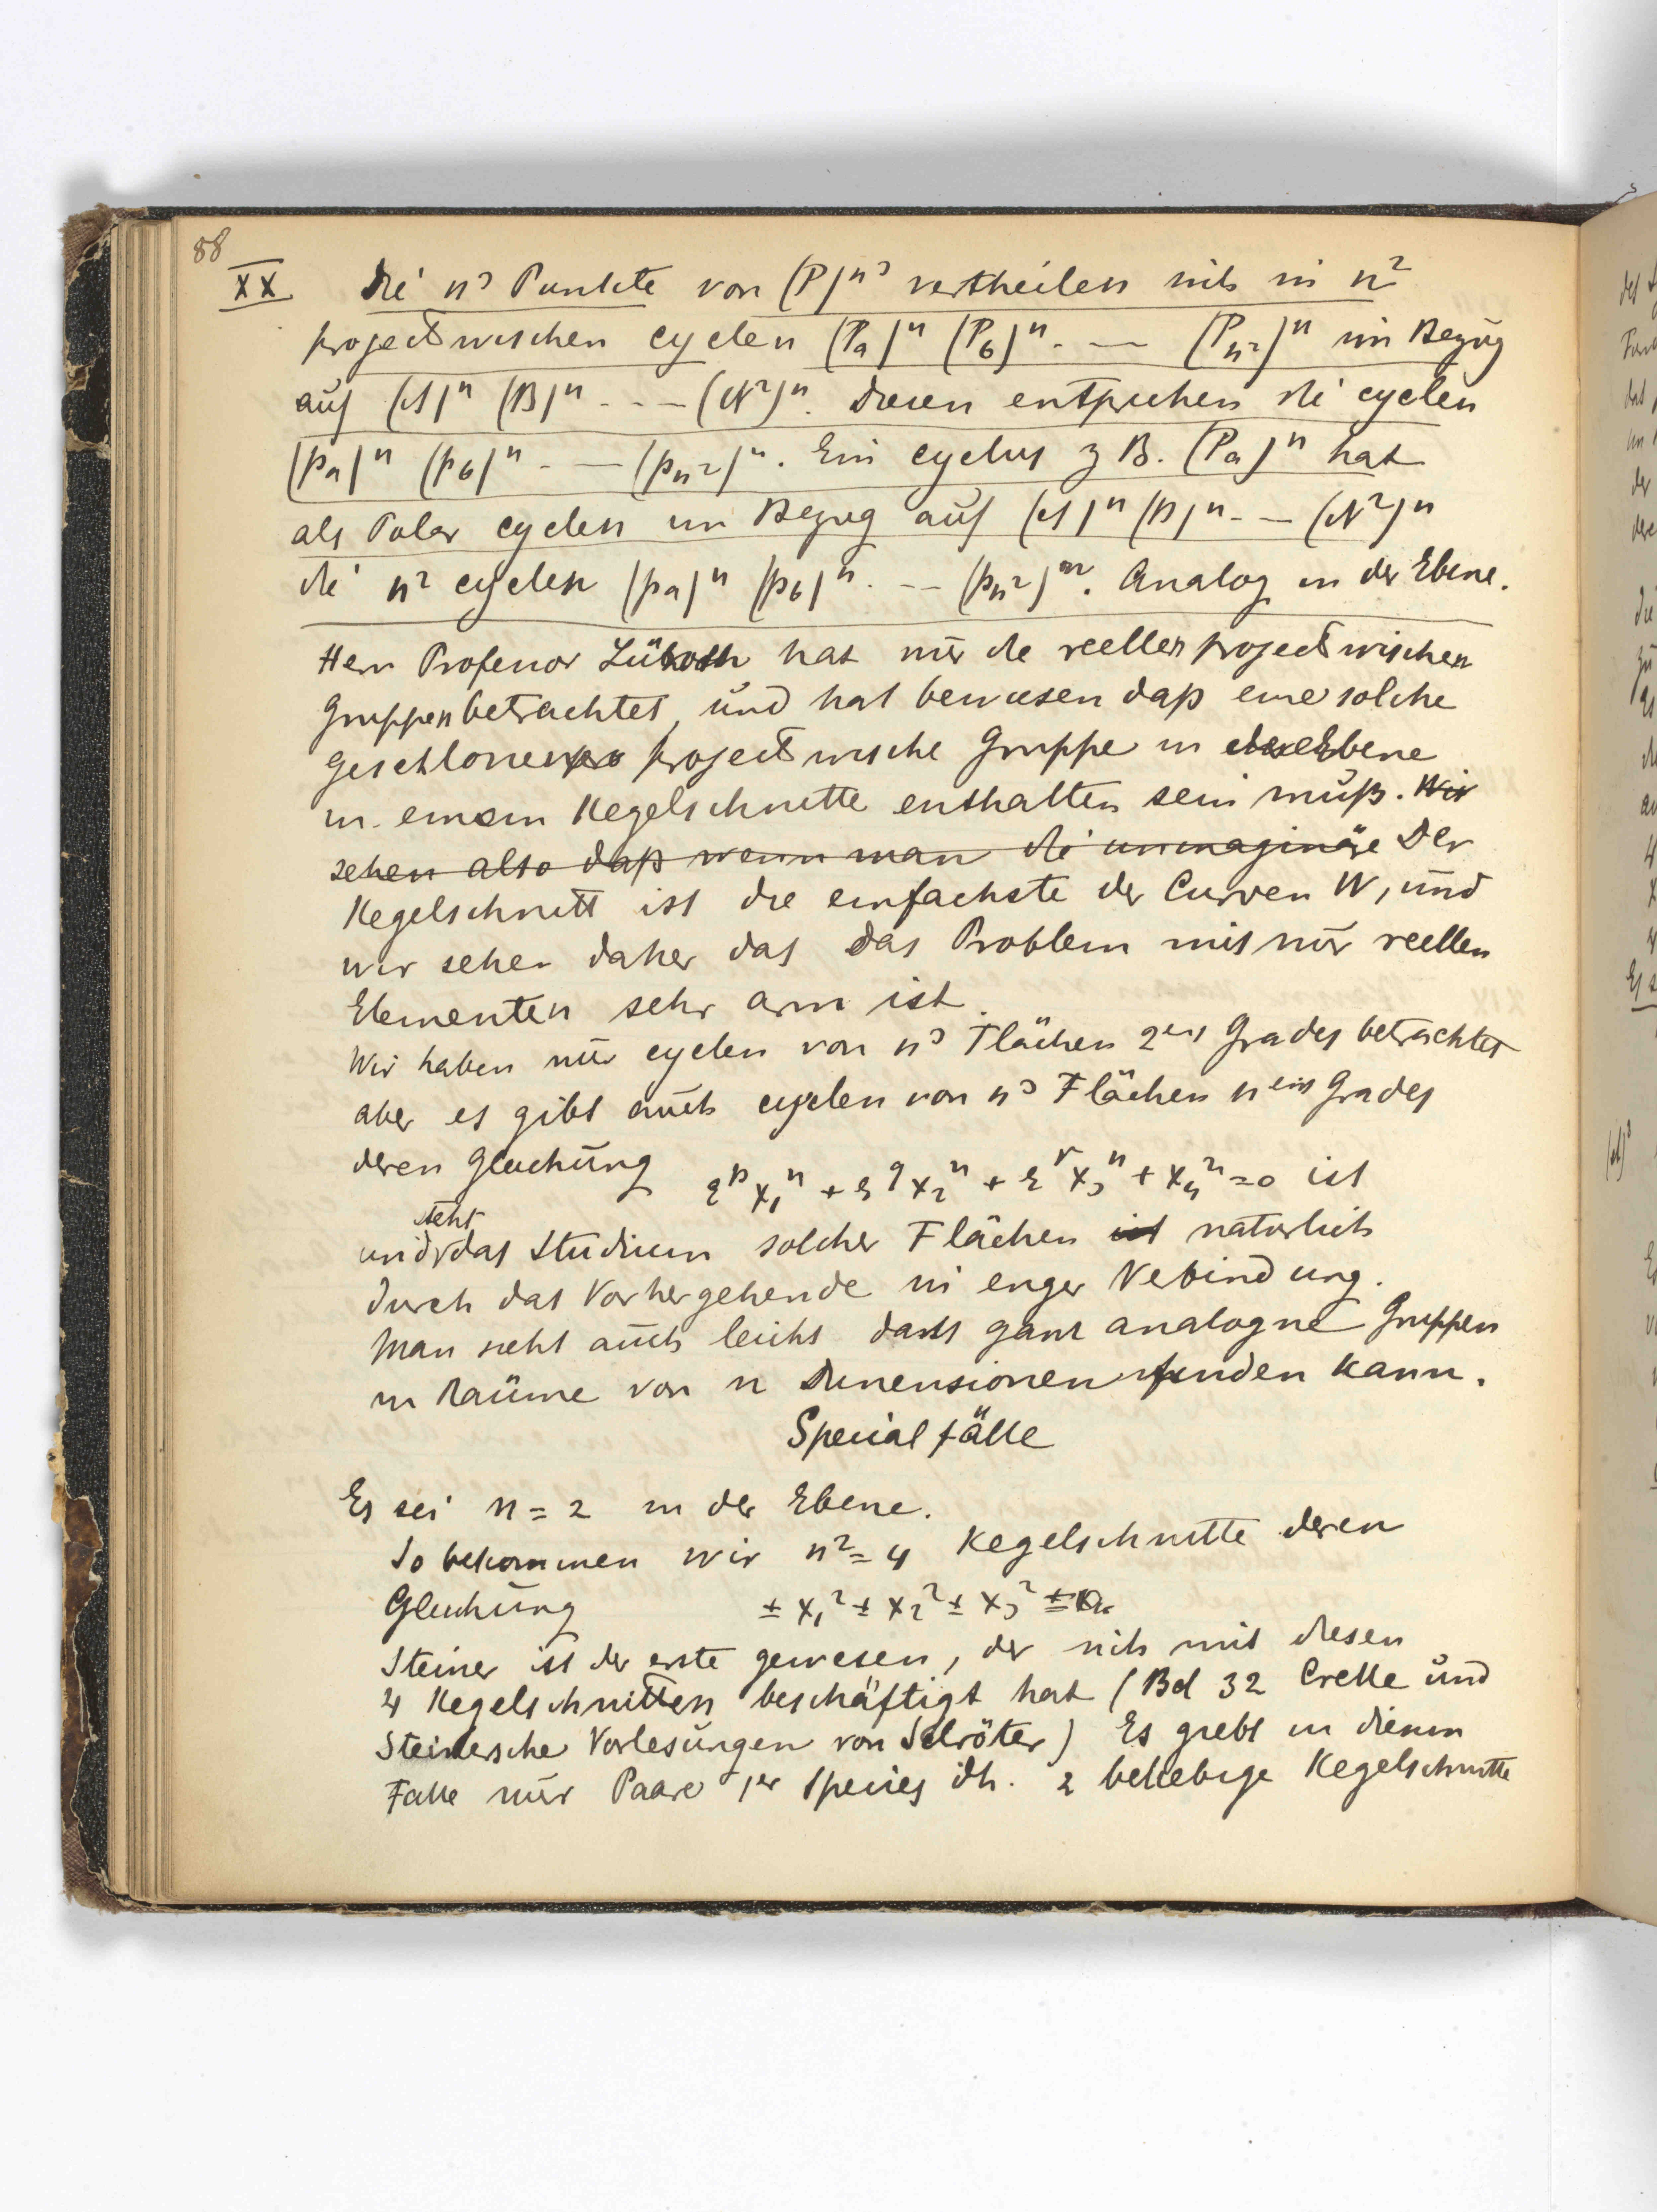 88
XX Die n³ Punkte von (P)ⁿ³ vertheilen sich in n²
projectivischen cyclen (Pa)ⁿ (Pb)ⁿ . — (Pn²)ⁿ im Bezug
auf (A)ⁿ (B)ⁿ - - — (N²)ⁿ. Diesen entsprechen die cyclen
(pa)ⁿ (pb)ⁿ - — (pn²)ⁿ. Ein cyclus z B. (Pa)ⁿ hat
als Polar cyclen im Bezug auf (A)ⁿ (B)ⁿ - — (N²)ⁿ
die n² cyclen (pa)ⁿ (pb)ⁿ . -- (pn²)ⁿ. Analog in der Ebene.
Herr Professor Lüroth hat nur die reellen projectivischen
Gruppen betrachtet, und hat bewiesen daß eine solche
geschlossene projectivische Gruppe in der Ebene
in einem Kegelschnitte enthalten sein muß. Wir
sehen also daß wenn man die immaginäre Der
Kegelschnitt ist die einfachste der Curven W, und
wir sehen daher das das Problem mit nur reellen
Elementen sehr arm ist.
Wir haben nur cyclen von n³ Flächen 2ten Grades betrachtet
aber es gibt auch cyclen von n³ Flächen nten Grades
deren Gleichung εᵖx₁ⁿ + ε^q x₂ⁿ + εʳx₃ⁿ + x₄ⁿ = 0 ist
steht
und das Studium solcher Flächen ist naturlich
durch das Vorhergehende in enger Verbindung.
Man sieht auch leicht dass ganz analogne Gruppen
in Raüme von n Dimensionen finden kann.
Specialfälle
Es sei n = 2 in der Ebene.
So bekommen wir n² = 4 Kegelschnitte deren
Gleichung ± x₁² ± x₂² ± x₃² = 0
Steiner ist der erste gewesen, der sich mit diesen
4 Kegelschnitten beschäftigt hat (Bd 32 Crelle und
Steinersche Vorlesungen von Schröter) Es giebt in diesem
Falle nur Paare 1er Species dh. 2 beliebige Kegelschnitte